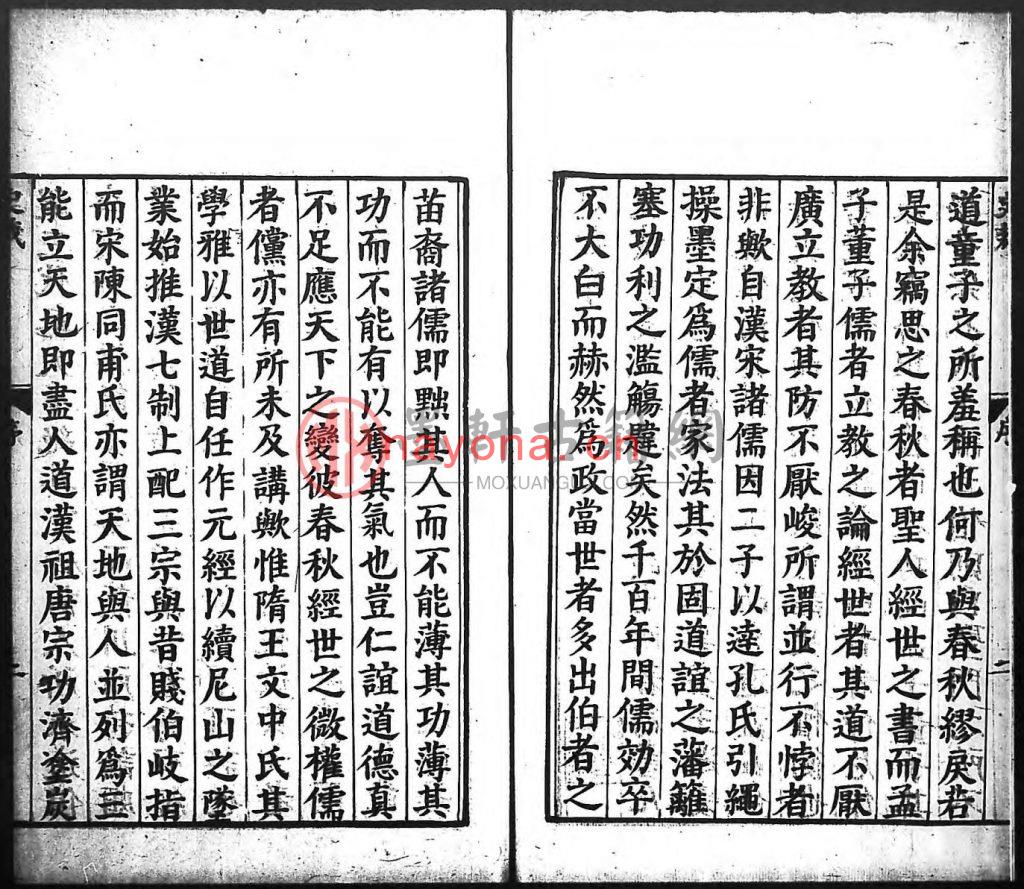 道董子之所羞稱也何乃與春秋繆戾若
是余竊思之春秋者聖人經世之書而孟
子董子儒者立教之論經世者其道不厭
廣立教者其防不厭峻所謂並行不悖者
非歟自漢宋諸儒因二子以逹孔氏引繩
操墨定爲儒者家法其於固道誼之藩籬
塞功利之濫觴韙矣然千百年間儒効卒
不大白而赫然爲政當世者多出伯者之
苗裔諸儒即黜其人而不能薄其功薄其
功而不能有以奪其氣也豈仁誼道德真
不足應天下之變彼春秋經世之微權儒
者儻亦有所未及講歟惟隋王文中氏其
學雅以世道自任作元經以續尼山之墜
業始推漢七制上配三宗與昔賤伯岐指
而宋陳同甫氏亦謂天地與人並列爲三
能立天地即盡人道漢祖唐宗功濟塗炭
序
二
墨軒古籍網
nayona.cn
MOXUANGUJI